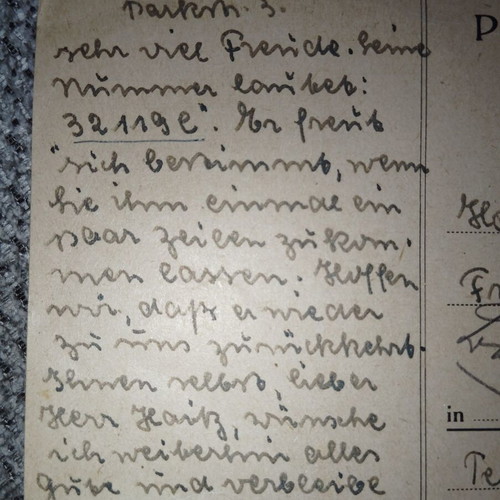 Parkstr. 3.
sehr viel Freude. Seine
Nummer lautet:
"32119 C". Er freut
sich bestimmt, wenn
Sie ihm einmal ein
paar Zeilen zukom-
men lassen. Hoffen
wir, daß er wieder
zu uns zurückkehrt.
Ihnen selbst, lieber
Herr Haitz, wünsche
ich weiterhin alles
Gute und verbleibe
P
Fr
in
Te